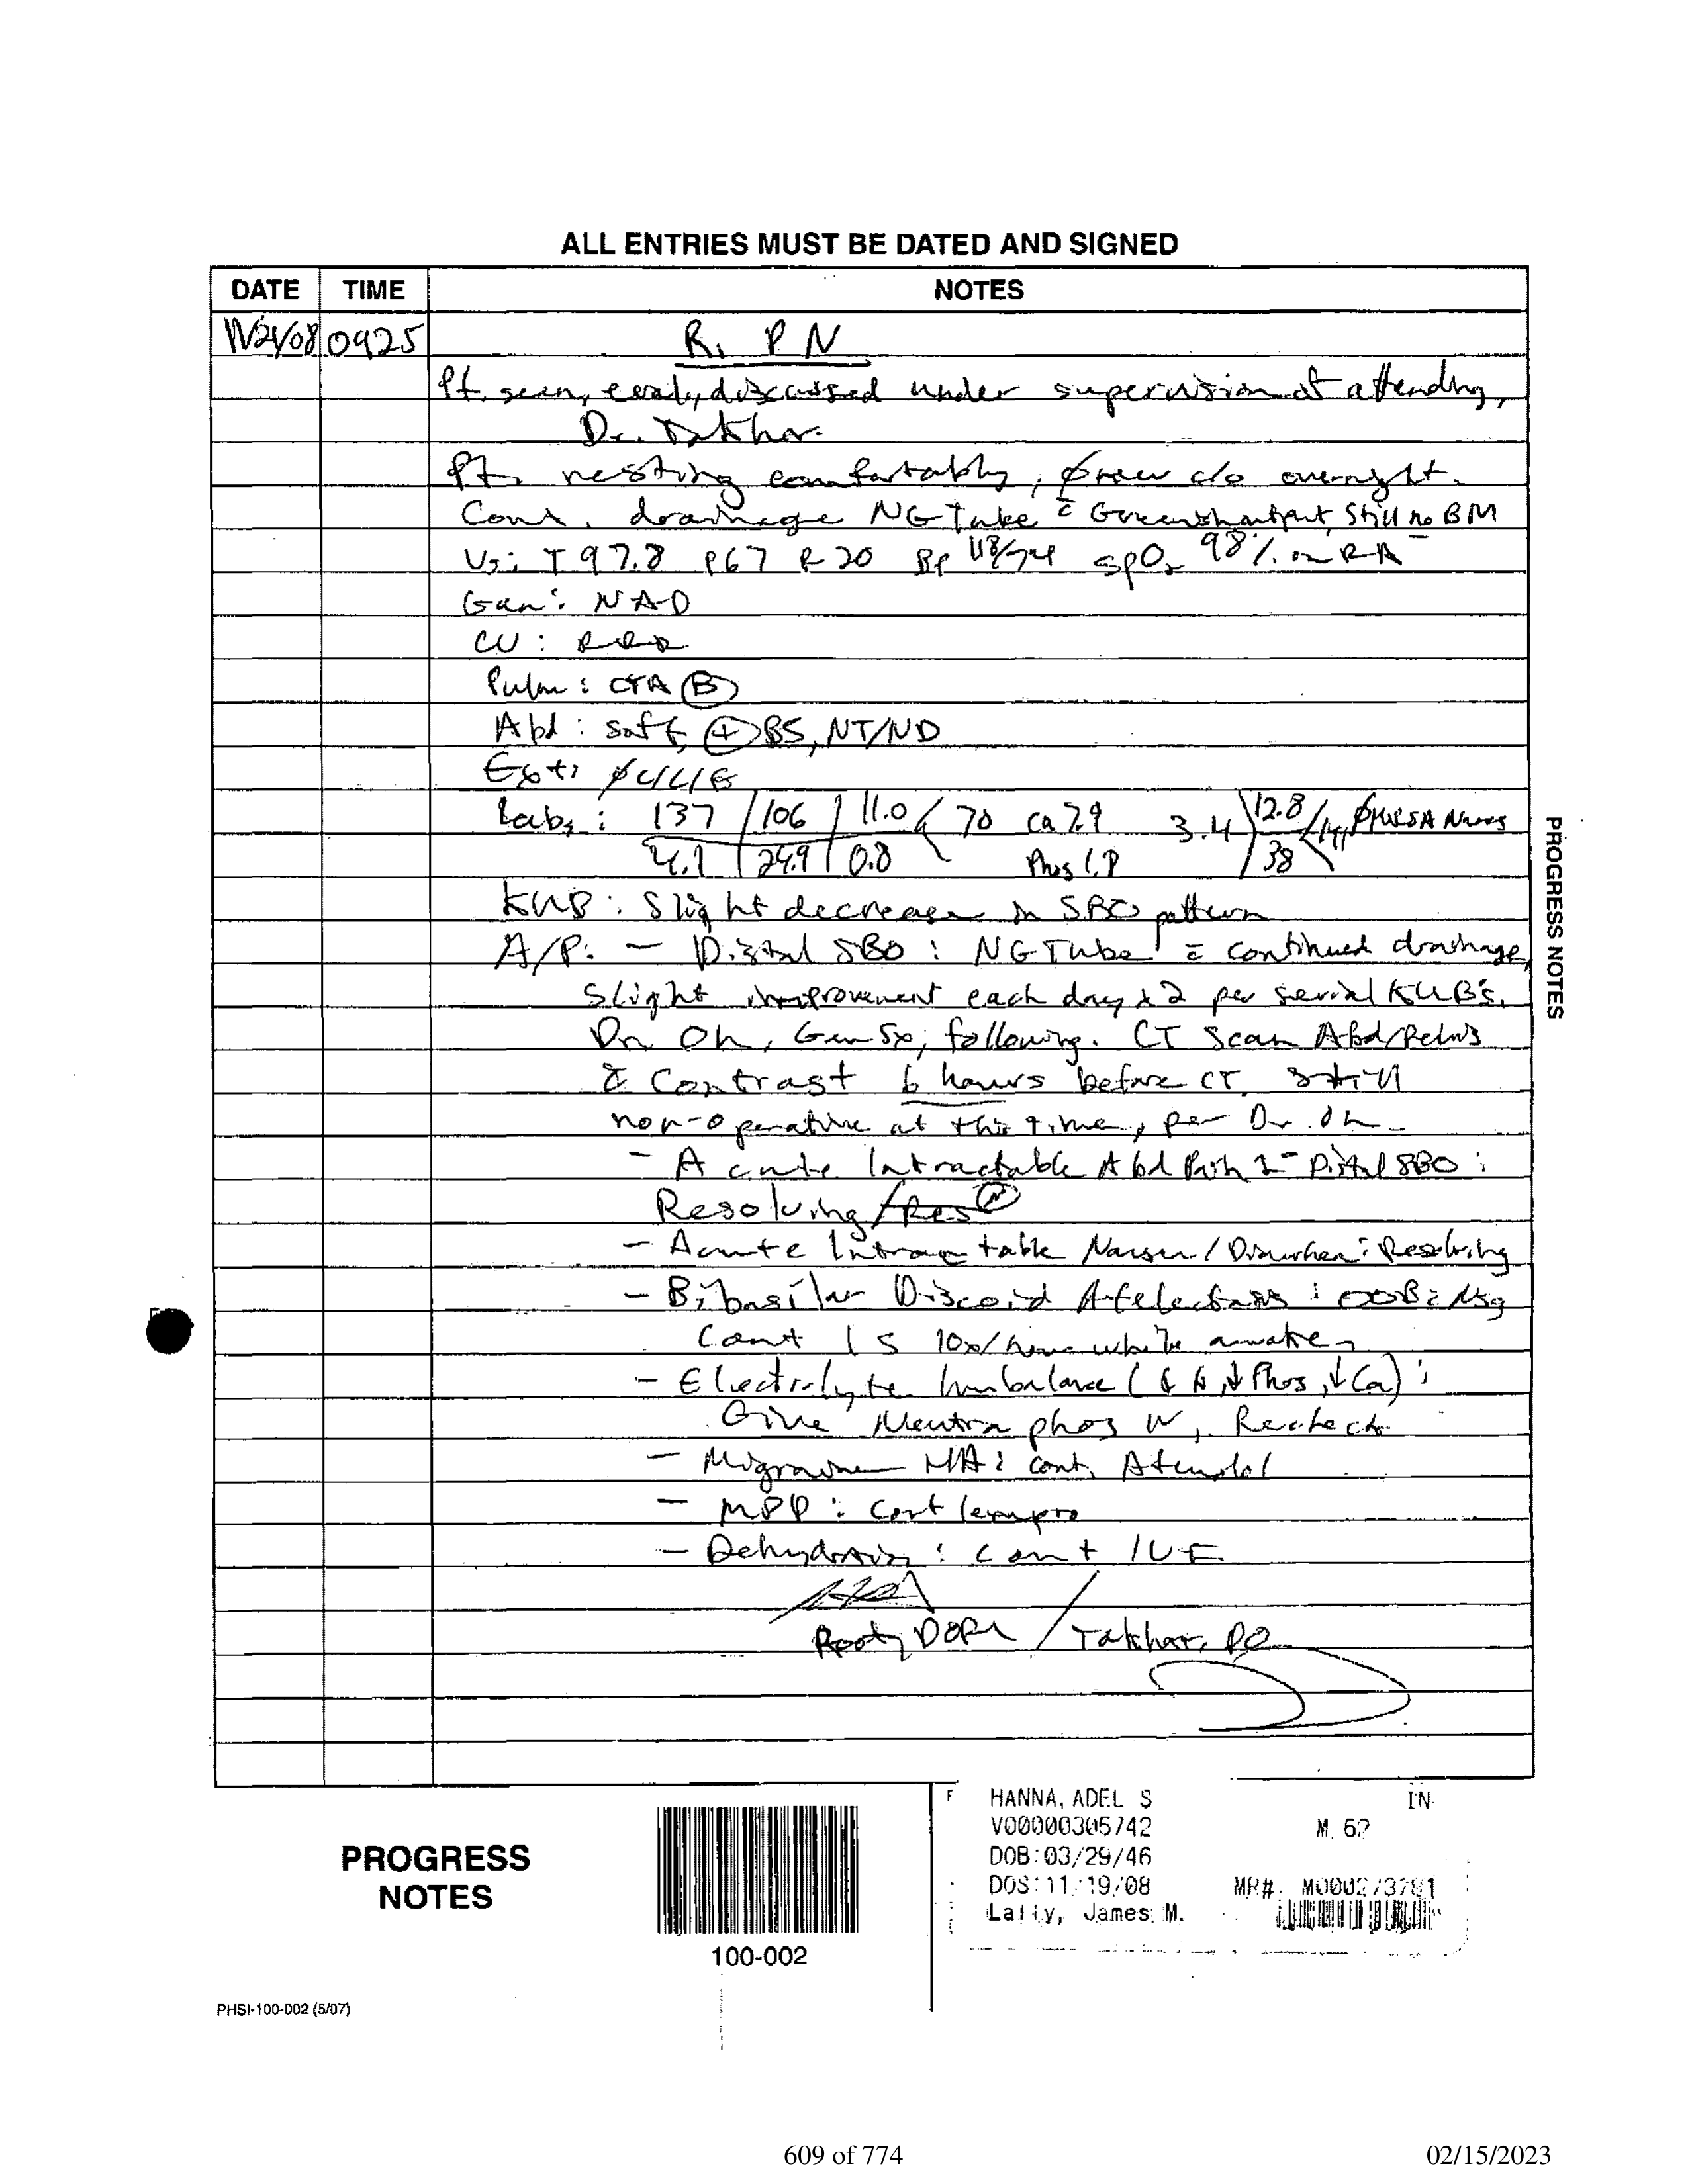 ALL ENTRIES MUST BE DATED AND SIGNED
DATE TIME NOTES
0925 R. PN
Pt. seen, discussed under supervision of attending,
Dr. Takhar
Pt. resting comfortably, ø new c/o overnight.
Cont. drainage NG Tube c̄ Greenish output, Still no BM
VS: T 97.8 P67 R 20 BP 118/74 SpO2 98% on RA
Gen: NAD
CV: RRR
Pulm: CTA (B)
Abd: soft, (+) BS, NT/ND
Ext: ø C/C/E
Labs: 137 106 11.0 70 Ca 7.9 3.4 12.8 ø MRSA Nares
4.1 24.9 0.8 Phos 38
KUB: Slight decrease in SBO pattern
A/P: - Distal SBO: NG Tube c̄ continued drainage,
slight improvement each day x 2 per serial KUB's.
Dr. Oh, Gen Sx, following. CT Scan Abd/Pelvis
c̄ Contrast 6 hours before CT. Still
non-operative at this time, per Dr. Oh.
- Acute Intractable Abd Pain 2° Distal SBO:
Resolving/Res
- Acute Intractable Nausea/Diarrhea: Resolving
- Bibasilar Discoid Atelectasis: OOB c̄ Nsg
Cont IS 10x/hour while awake
- Electrolyte Imbalance (↓ Phos, ↓ Ca):
Give Neutraphos Recheck
- Migraine HA: cont. Atenolol
- MDD: Cont lexapro
- Dehydration: cont IVF
DO / Takhar, DO
PROGRESS NOTES
PROGRESS
NOTES
100-002
HANNA, ADEL S IN
V00000305742 M 62
DOB:03/29/46
DOS:11/19/08 MR#. M000273781
Lally, James M.
PHSI-100-002 (5/07)
609 of 774 02/15/2023